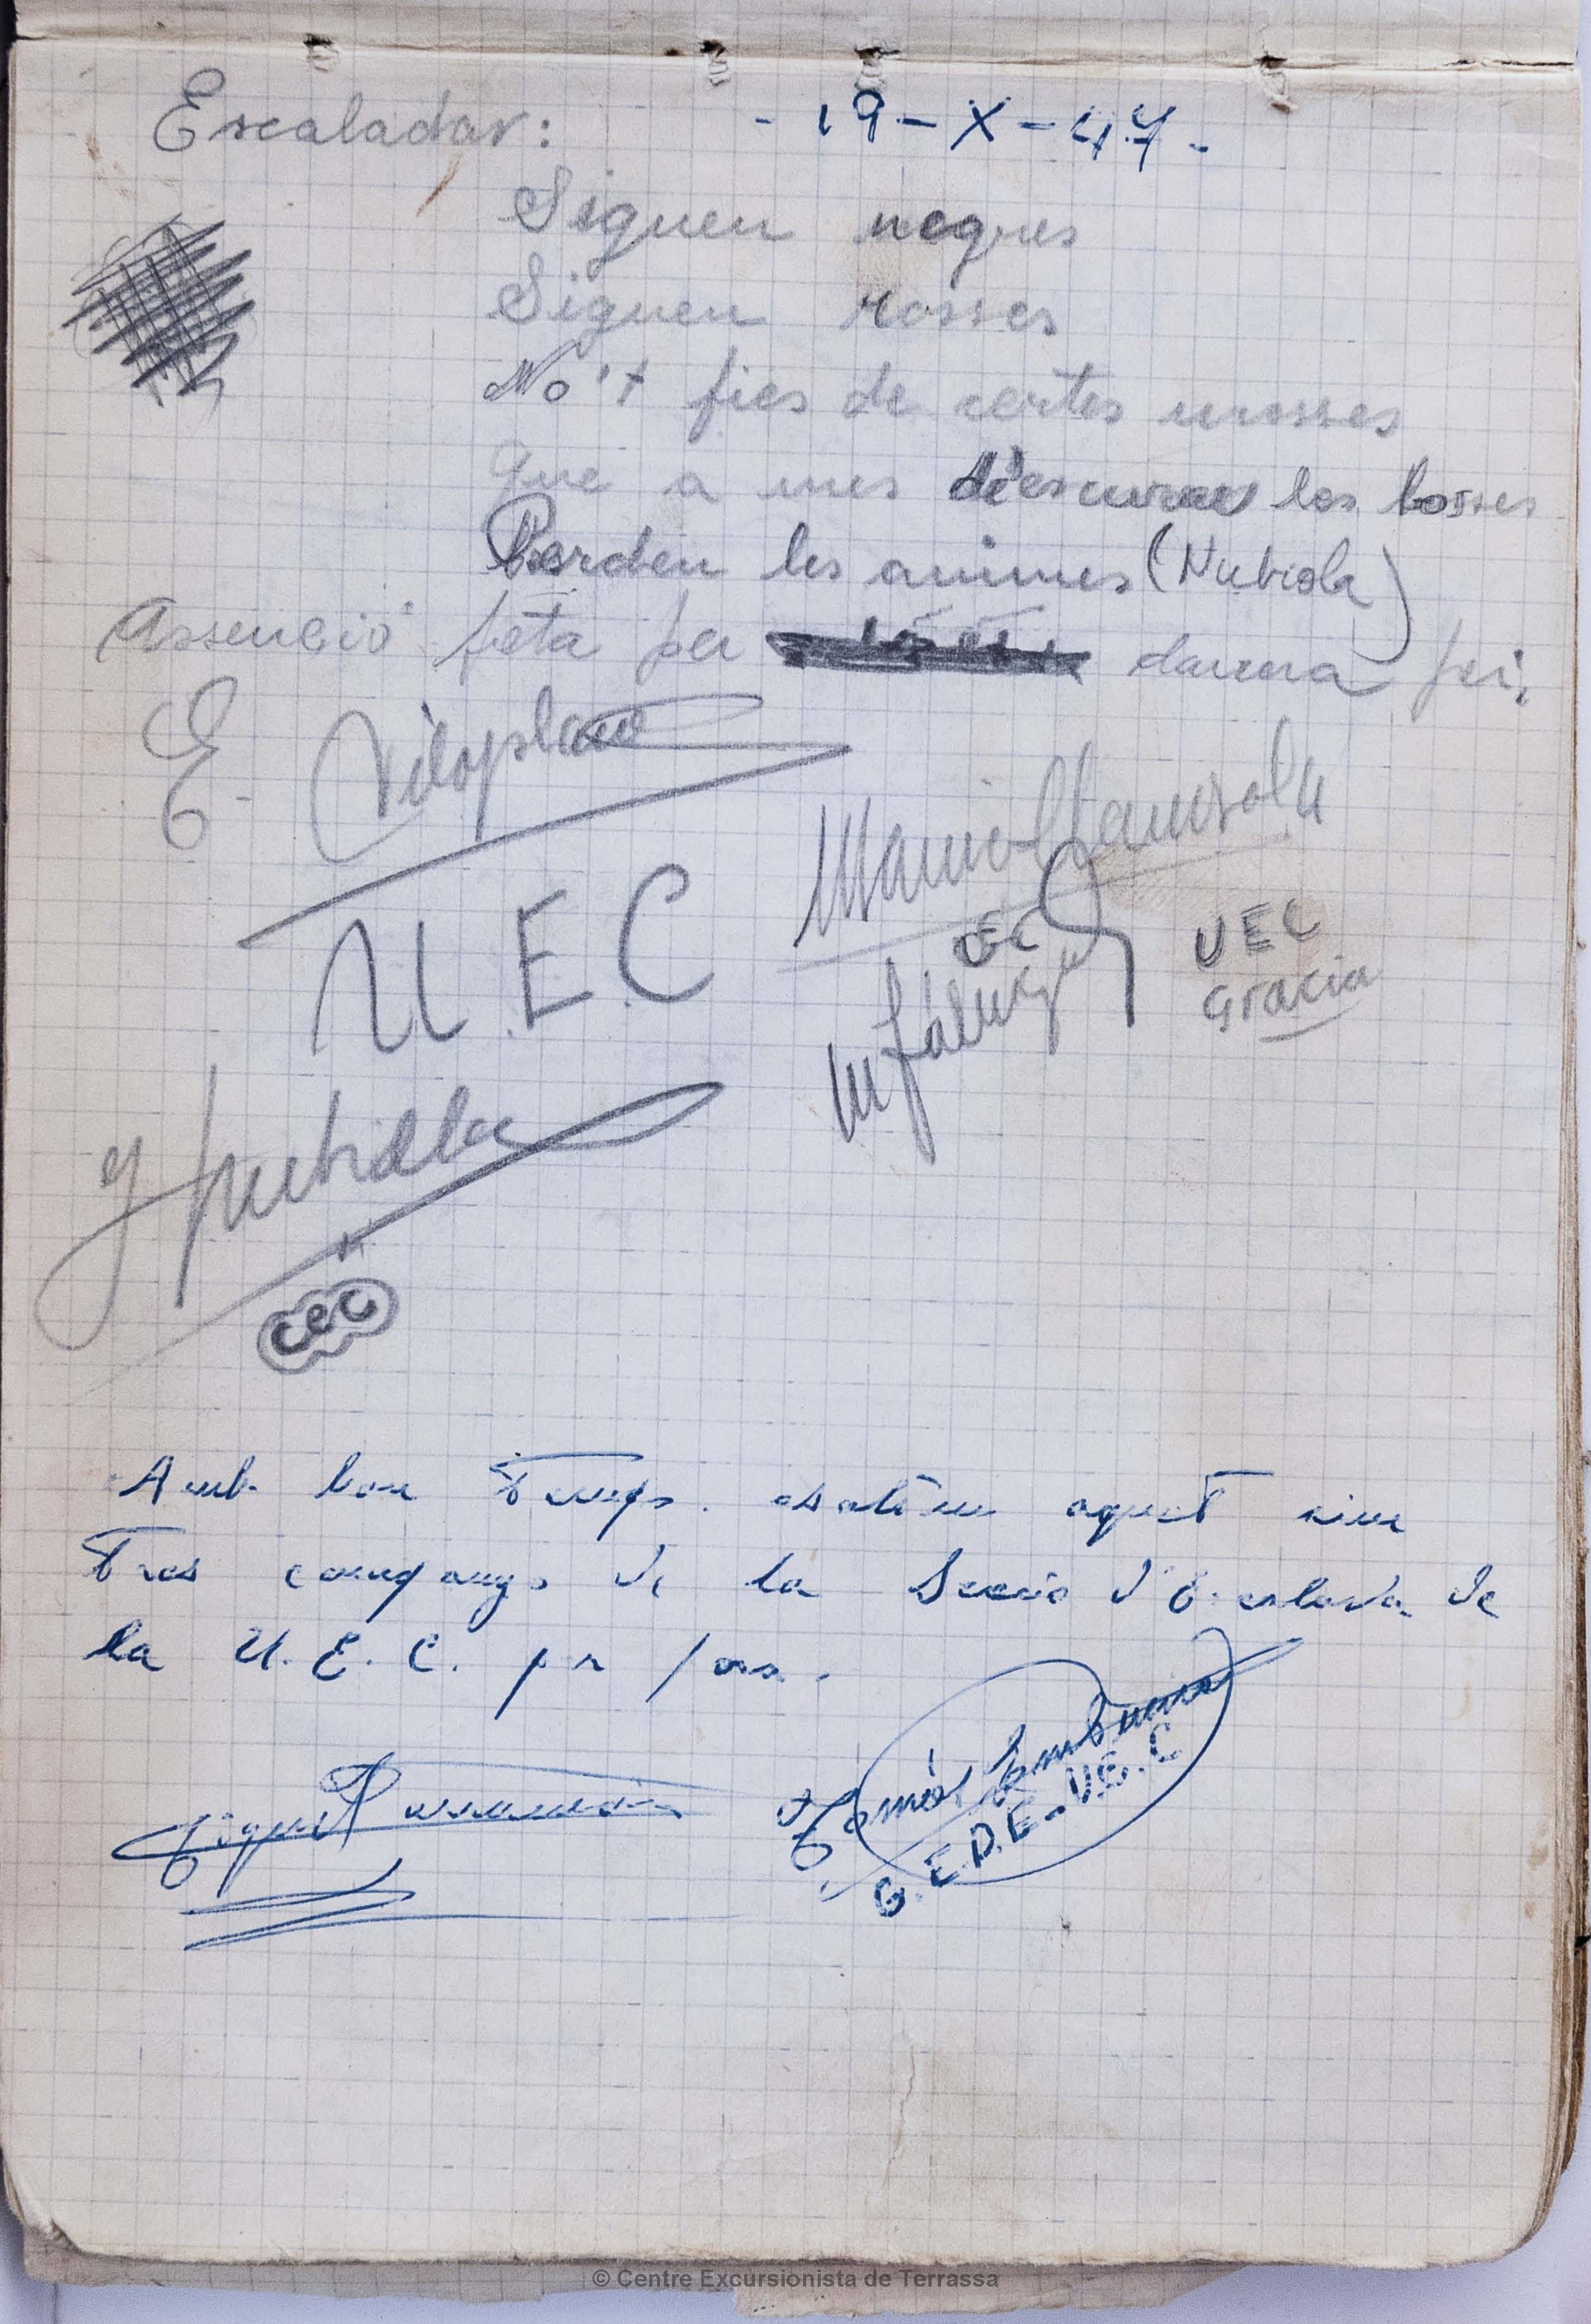 Escalador:
- 19-X-47.
Siguen negres
Siguen rosses
No't fies de certes mosses
Que a mes d'escurar les bosses
Perden les animes (Nubiola)
Assenció feta per darrera fei,
E. Viloplana
U.E.C
UEC
UEC
Gracia
J Nubiola
CEC
Amb bon temps. asolim aquest cim
tres companys de la Secció d'Escalada de
la U.E.C. per fora.
Miquel
Tomás
G.E.D.E-U.E.C
© Centre Excursionista de Terrassa